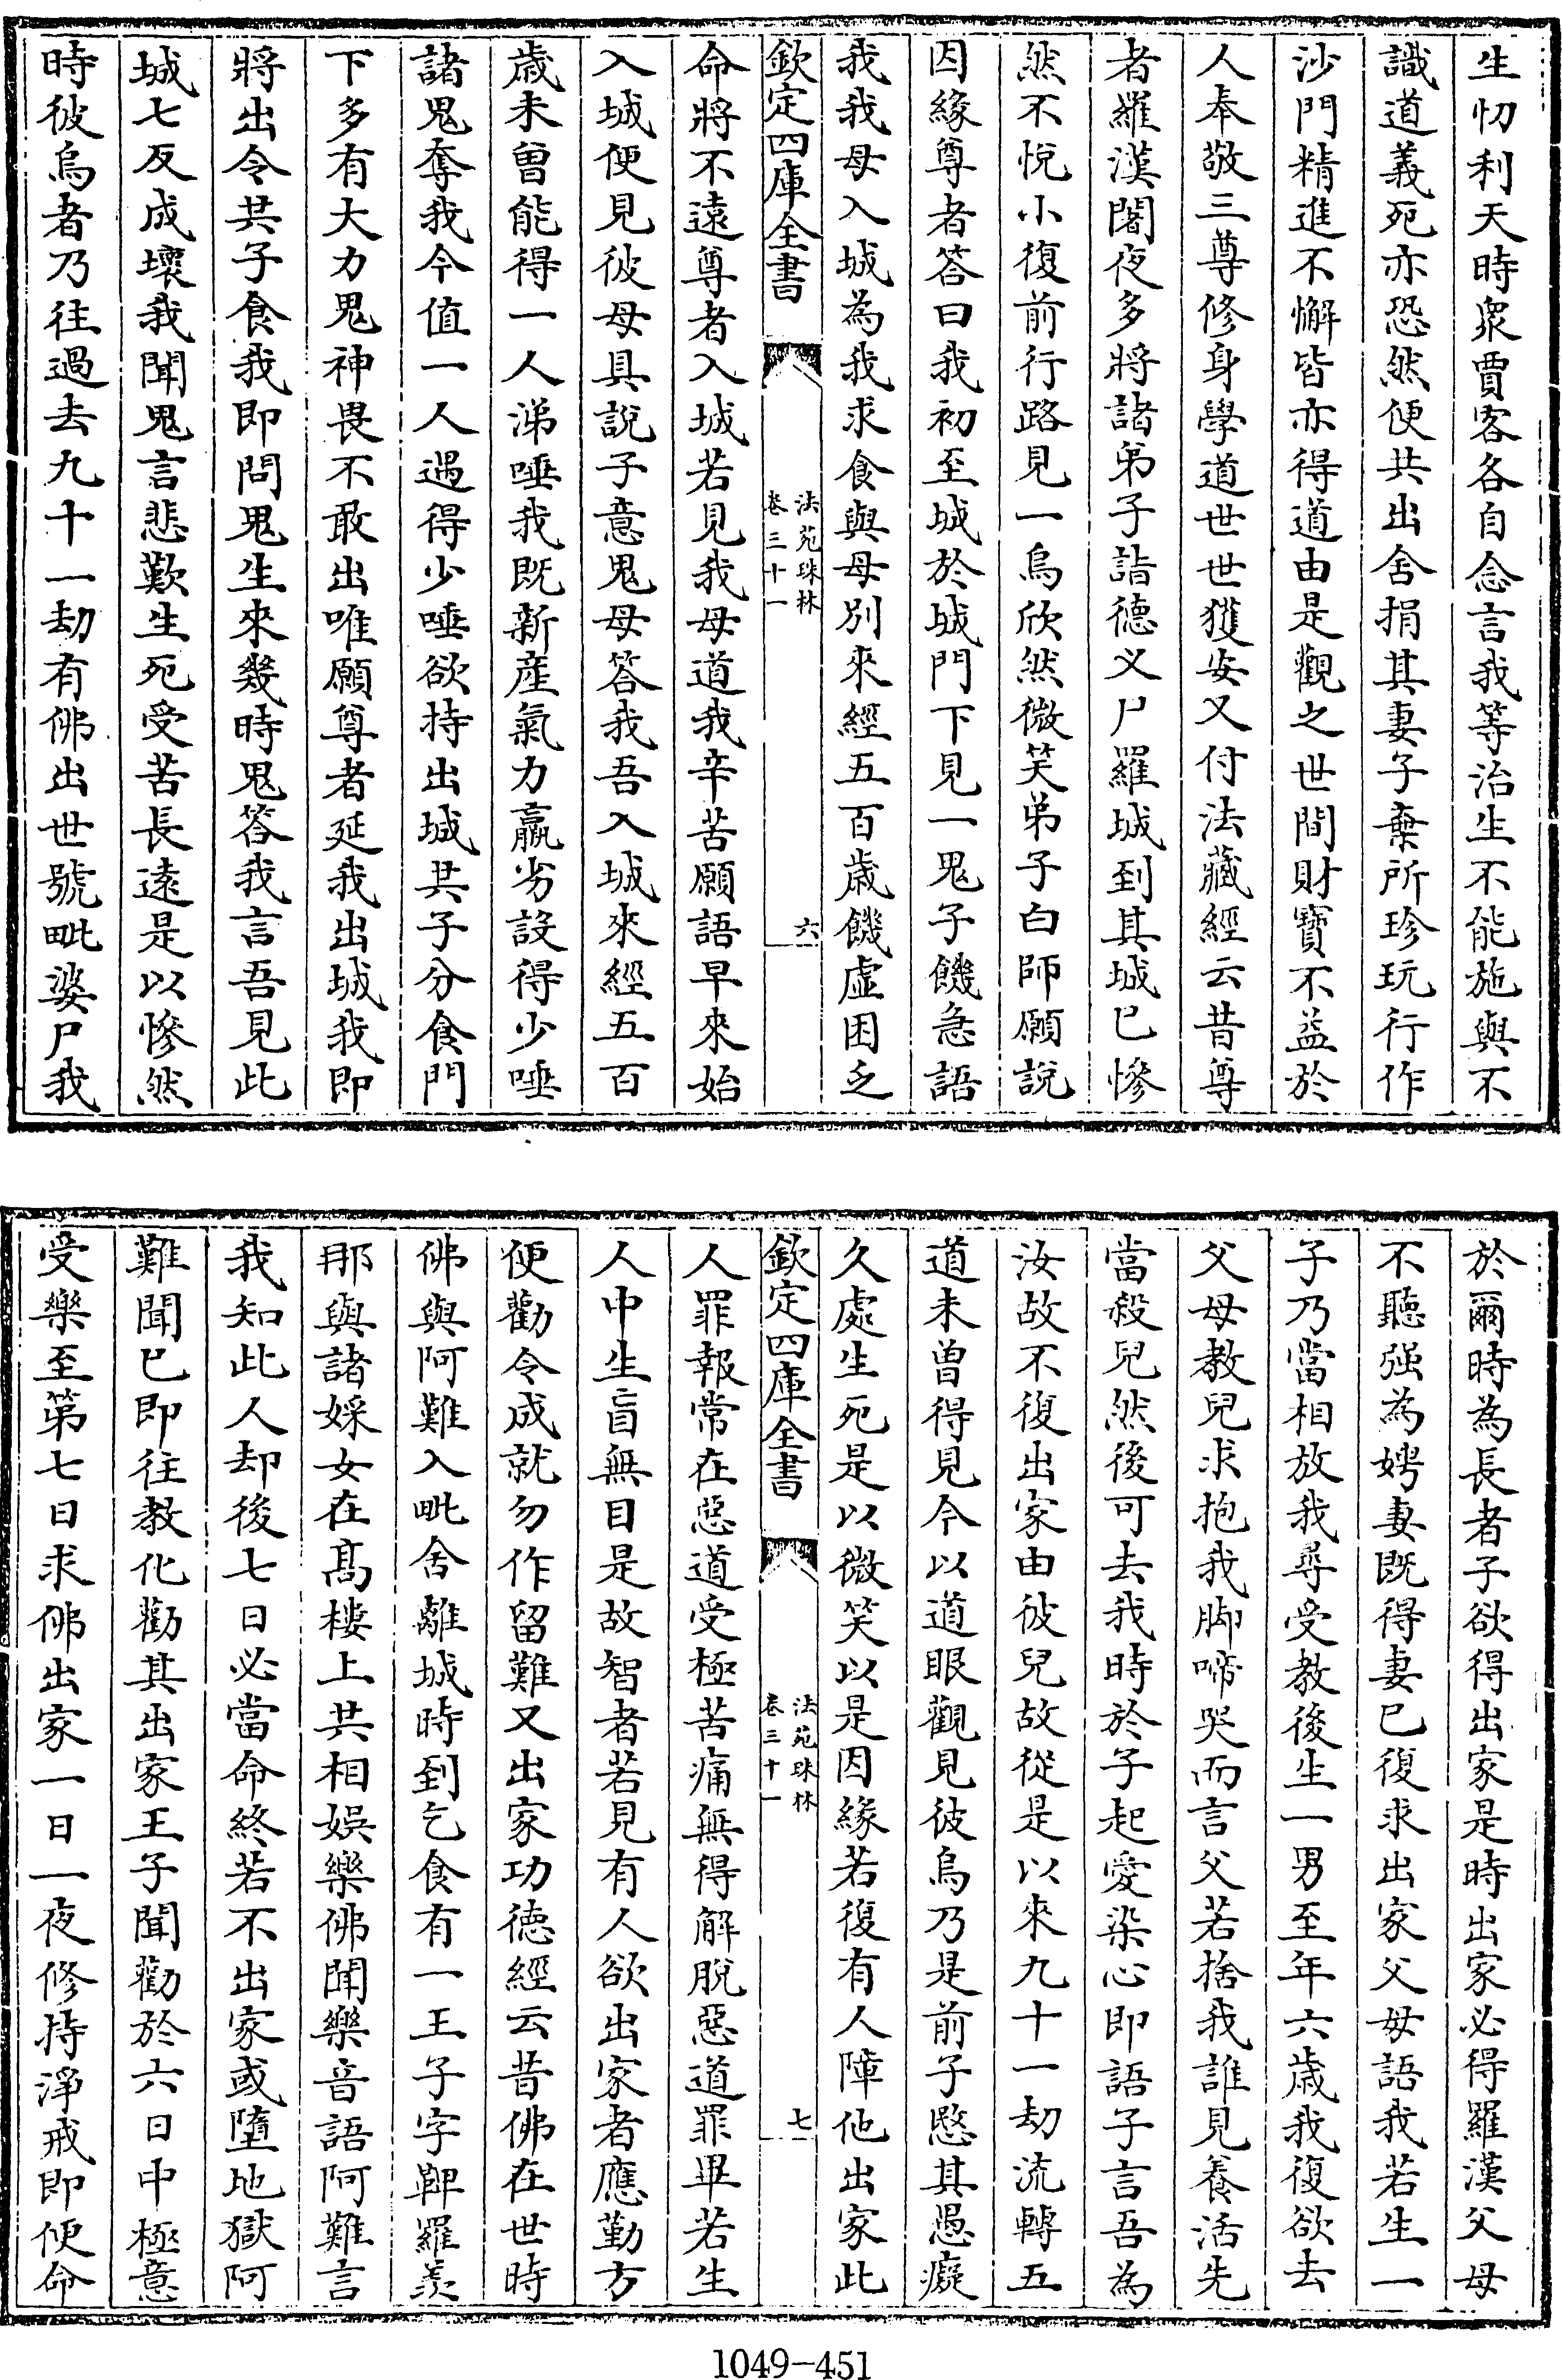 生忉利天時衆賈客各自念言我等治生不能施與不
識道義死亦恐然便共出舍捐其妻子棄所珍玩行作
沙門精進不懈皆亦得道由是觀之世間財寳不益於
人奉敬三尊修身學道世世獲安又付法藏經云昔尊
者羅漢闍夜多將諸弟子詣德义尸羅城到其城已慘
然不悅小復前行路見一烏欣然微笑弟子白師願說
因緣尊者答曰我初至城於城門下見一鬼子饑急語
我我母入城為我求食與母別來經五百歲饑虛困乏
欽定四庫全書
法苑珠林
卷三十一
六
命將不遠尊者入城若見我母道我辛苦願語早來始
入城便見彼母具說子意鬼母答我吾入城來經五百
歲未曾能得一人涕唾我既新産氣力羸劣設得少唾
諸鬼奪我今值一人遇得少唾欲持出城共子分食門
下多有大力鬼神畏不敢出唯願尊者延我出城我即
將出令共子食我即問鬼生來幾時鬼答我言吾見此
城七反成壞我聞鬼言悲歎生死受苦長遠是以慘然
時彼烏者乃往過去九十一劫有佛出世號毗婆尸我
於爾時為長者子欲得出家是時出家必得羅漢父母
不聽强為娉妻既得妻已復求出家父母語我若生一
子乃當相放我尋受教後生一男至年六歲我復欲去
父母教兒求抱我脚啼哭而言父若捨我誰見養活先
當殺兒然後可去我時於子起愛染心即語子言吾為
汝故不復出家由彼兒故從是以來九十一劫流轉五
道未曾得見今以道眼觀見彼烏乃是前子愍其愚癡
久處生死是以微笑以是因緣若復有人障他出家此
欽定四庫全書
法苑珠林
卷三十一
七
人罪報常在惡道受極苦痛無得解脫惡道罪畢若生
人中生盲無目是故智者若見有人欲出家者應勤方
便勸令成就勿作留難又出家功德經云昔佛在世時
佛與阿難入毗舍離城時到乞食有一王子字鞞羅羨
那與諸婇女在髙樓上共相娛樂佛聞樂音語阿難言
我知此人却後七日必當命終若不出家或墮地獄阿
難聞已即往教化勸其出家王子聞勸於六日中極意
受樂至第七日求佛出家一日一夜修持淨戒即便命
1049-451